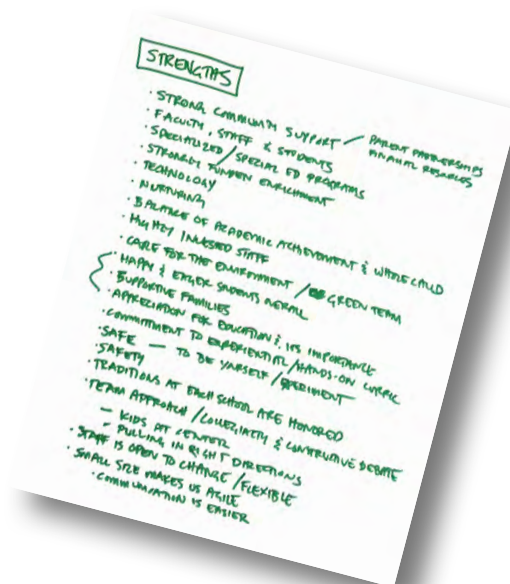 STRENGTHS
· STRONG COMMUNITY SUPPORT — PARENT PARTNERSHIPS
FINANCIAL RESOURCES
· FACULTY, STAFF & STUDENTS
· SPECIALIZED / SPECIAL ED PROGRAMS
· STRONGLY ENRICHMENT
· TECHNOLOGY
· NURTURING
· BALANCE OF ACADEMIC ACHIEVEMENT & WHOLE CHILD
· HIGHLY INVESTED STAFF
· CARE FOR THE ENVIRONMENT / GREEN TEAM
· HAPPY & EAGER STUDENTS OVERALL
· SUPPORTIVE FAMILIES
· APPRECIATION FOR EDUCATION & ITS IMPORTANCE
· COMMITMENT TO EXPERIENTIAL / HANDS-ON CURRIC
· SAFE — TO BE YOURSELF / EXPERIMENT
· SAFETY
· TRADITIONS AT EACH SCHOOL ARE HONORED
· TEAM APPROACH / COLLEGIALITY & CONSTRUCTIVE DEBATE
— KIDS AT CENTER
— PULLING IN RIGHT DIRECTIONS
· STAFF IS OPEN TO CHANGE / FLEXIBLE
· SMALL SIZE MAKES US AGILE
· COMMUNICATION IS EASIER